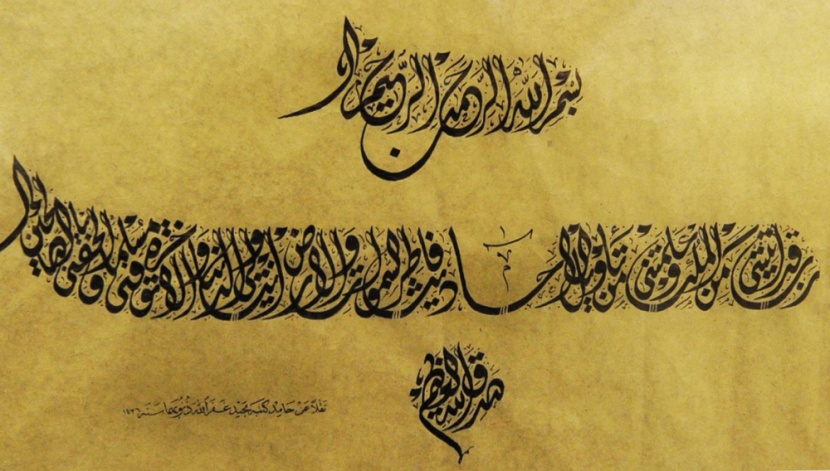 بسم الله الرحمن الرحيم
رب قد آتيتني من الملك وعلمتني من تأويل الأحاديث فاطر السموات والأرض أنت وليي في الدنيا والآخرة توفني مسلما وألحقني بالصالحين
صدق الله العظيم
نقلا من حامد كتبه غفر الله ذنوبهما سنة